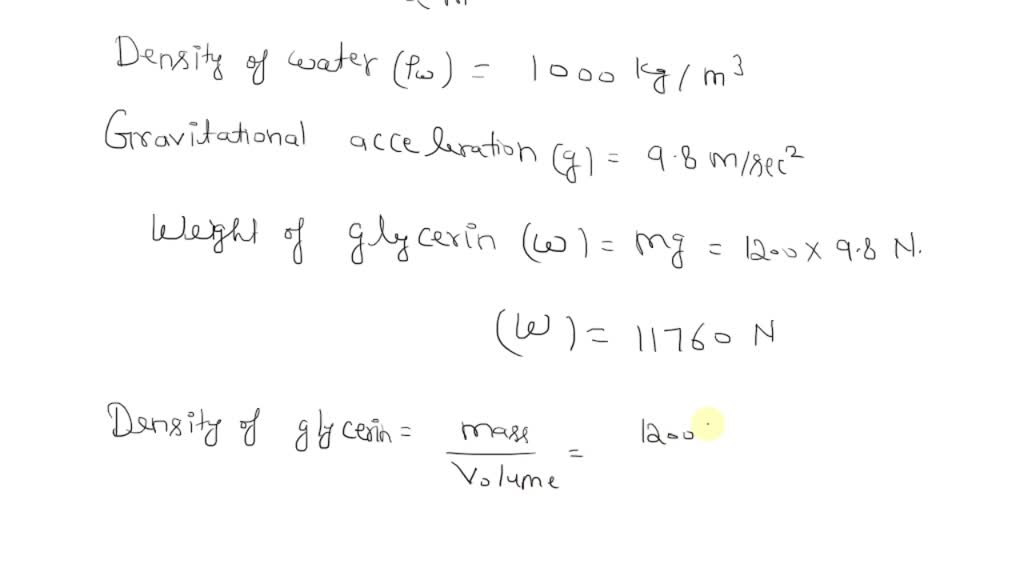 Density of water (ρw) = 1000 kg/m³
Gravitational acceleration (g) = 9.8 m/sec²
Weight of glycerin (w) = mg = 1200 × 9.8 N.
(W) = 11760 N
Density of glycerin = mass / Volume = 1200